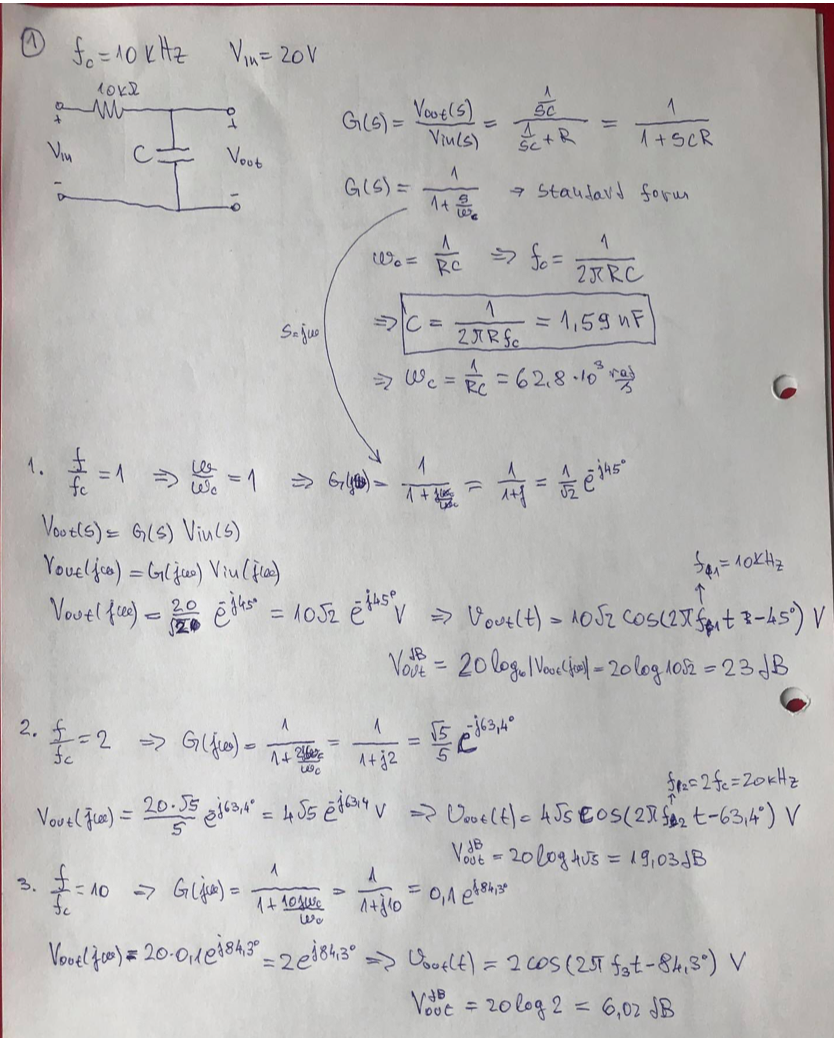 ① f_c = 10 kHz V_in = 20V
10kΩ
+ +
V_in C V_out
- -
G(s) = V_out(s)/V_in(s) = (1/sC)/(1/sC + R) = 1/(1 + sCR)
G(s) = 1/(1 + s/ω_c) → standard form
ω_c = 1/RC ⇒ f_c = 1/(2πRC)
s=jω
⇒ C = 1/(2πRf_c) = 1,59 nF
⇒ ω_c = 1/RC = 62,8 · 10³ rad/s
1. f/f_c = 1 ⇒ ω/ω_c = 1 ⇒ G(jω) = 1/(1 + jω_c/ω_c) = 1/(1+j) = 1/√2 e^{-j45°}
V_out(s) = G(s) V_in(s)
V_out(jω) = G(jω) V_in(jω)
f_1 = 10kHz
V_out(jω) = 20/√2 e^{-j45°} = 10√2 e^{-j45°} V ⇒ V_out(t) = 10√2 cos(2πf_1t - 45°) V
V_out^dB = 20 log |V_out(jω)| = 20 log 10√2 = 23 dB
2. f/f_c = 2 ⇒ G(jω) = 1/(1 + 2jω_c/ω_c) = 1/(1+j2) = √5/5 e^{-j63,4°}
f_2 = 2f_c = 20kHz
V_out(jω) = 20·√5/5 e^{-j63,4°} = 4√5 e^{-j63,4} V ⇒ V_out(t) = 4√5 cos(2πf_2t - 63,4°) V
V_out^dB = 20 log 4√5 = 19,03 dB
3. f/f_c = 10 ⇒ G(jω) = 1/(1 + 10jω_c/ω_c) = 1/(1+j10) = 0,1 e^{j84,3°}
V_out(jω) = 20·0,1e^{j84,3°} = 2e^{j84,3°} ⇒ V_out(t) = 2 cos(2π f_3t - 84,3°) V
V_out^dB = 20 log 2 = 6,02 dB